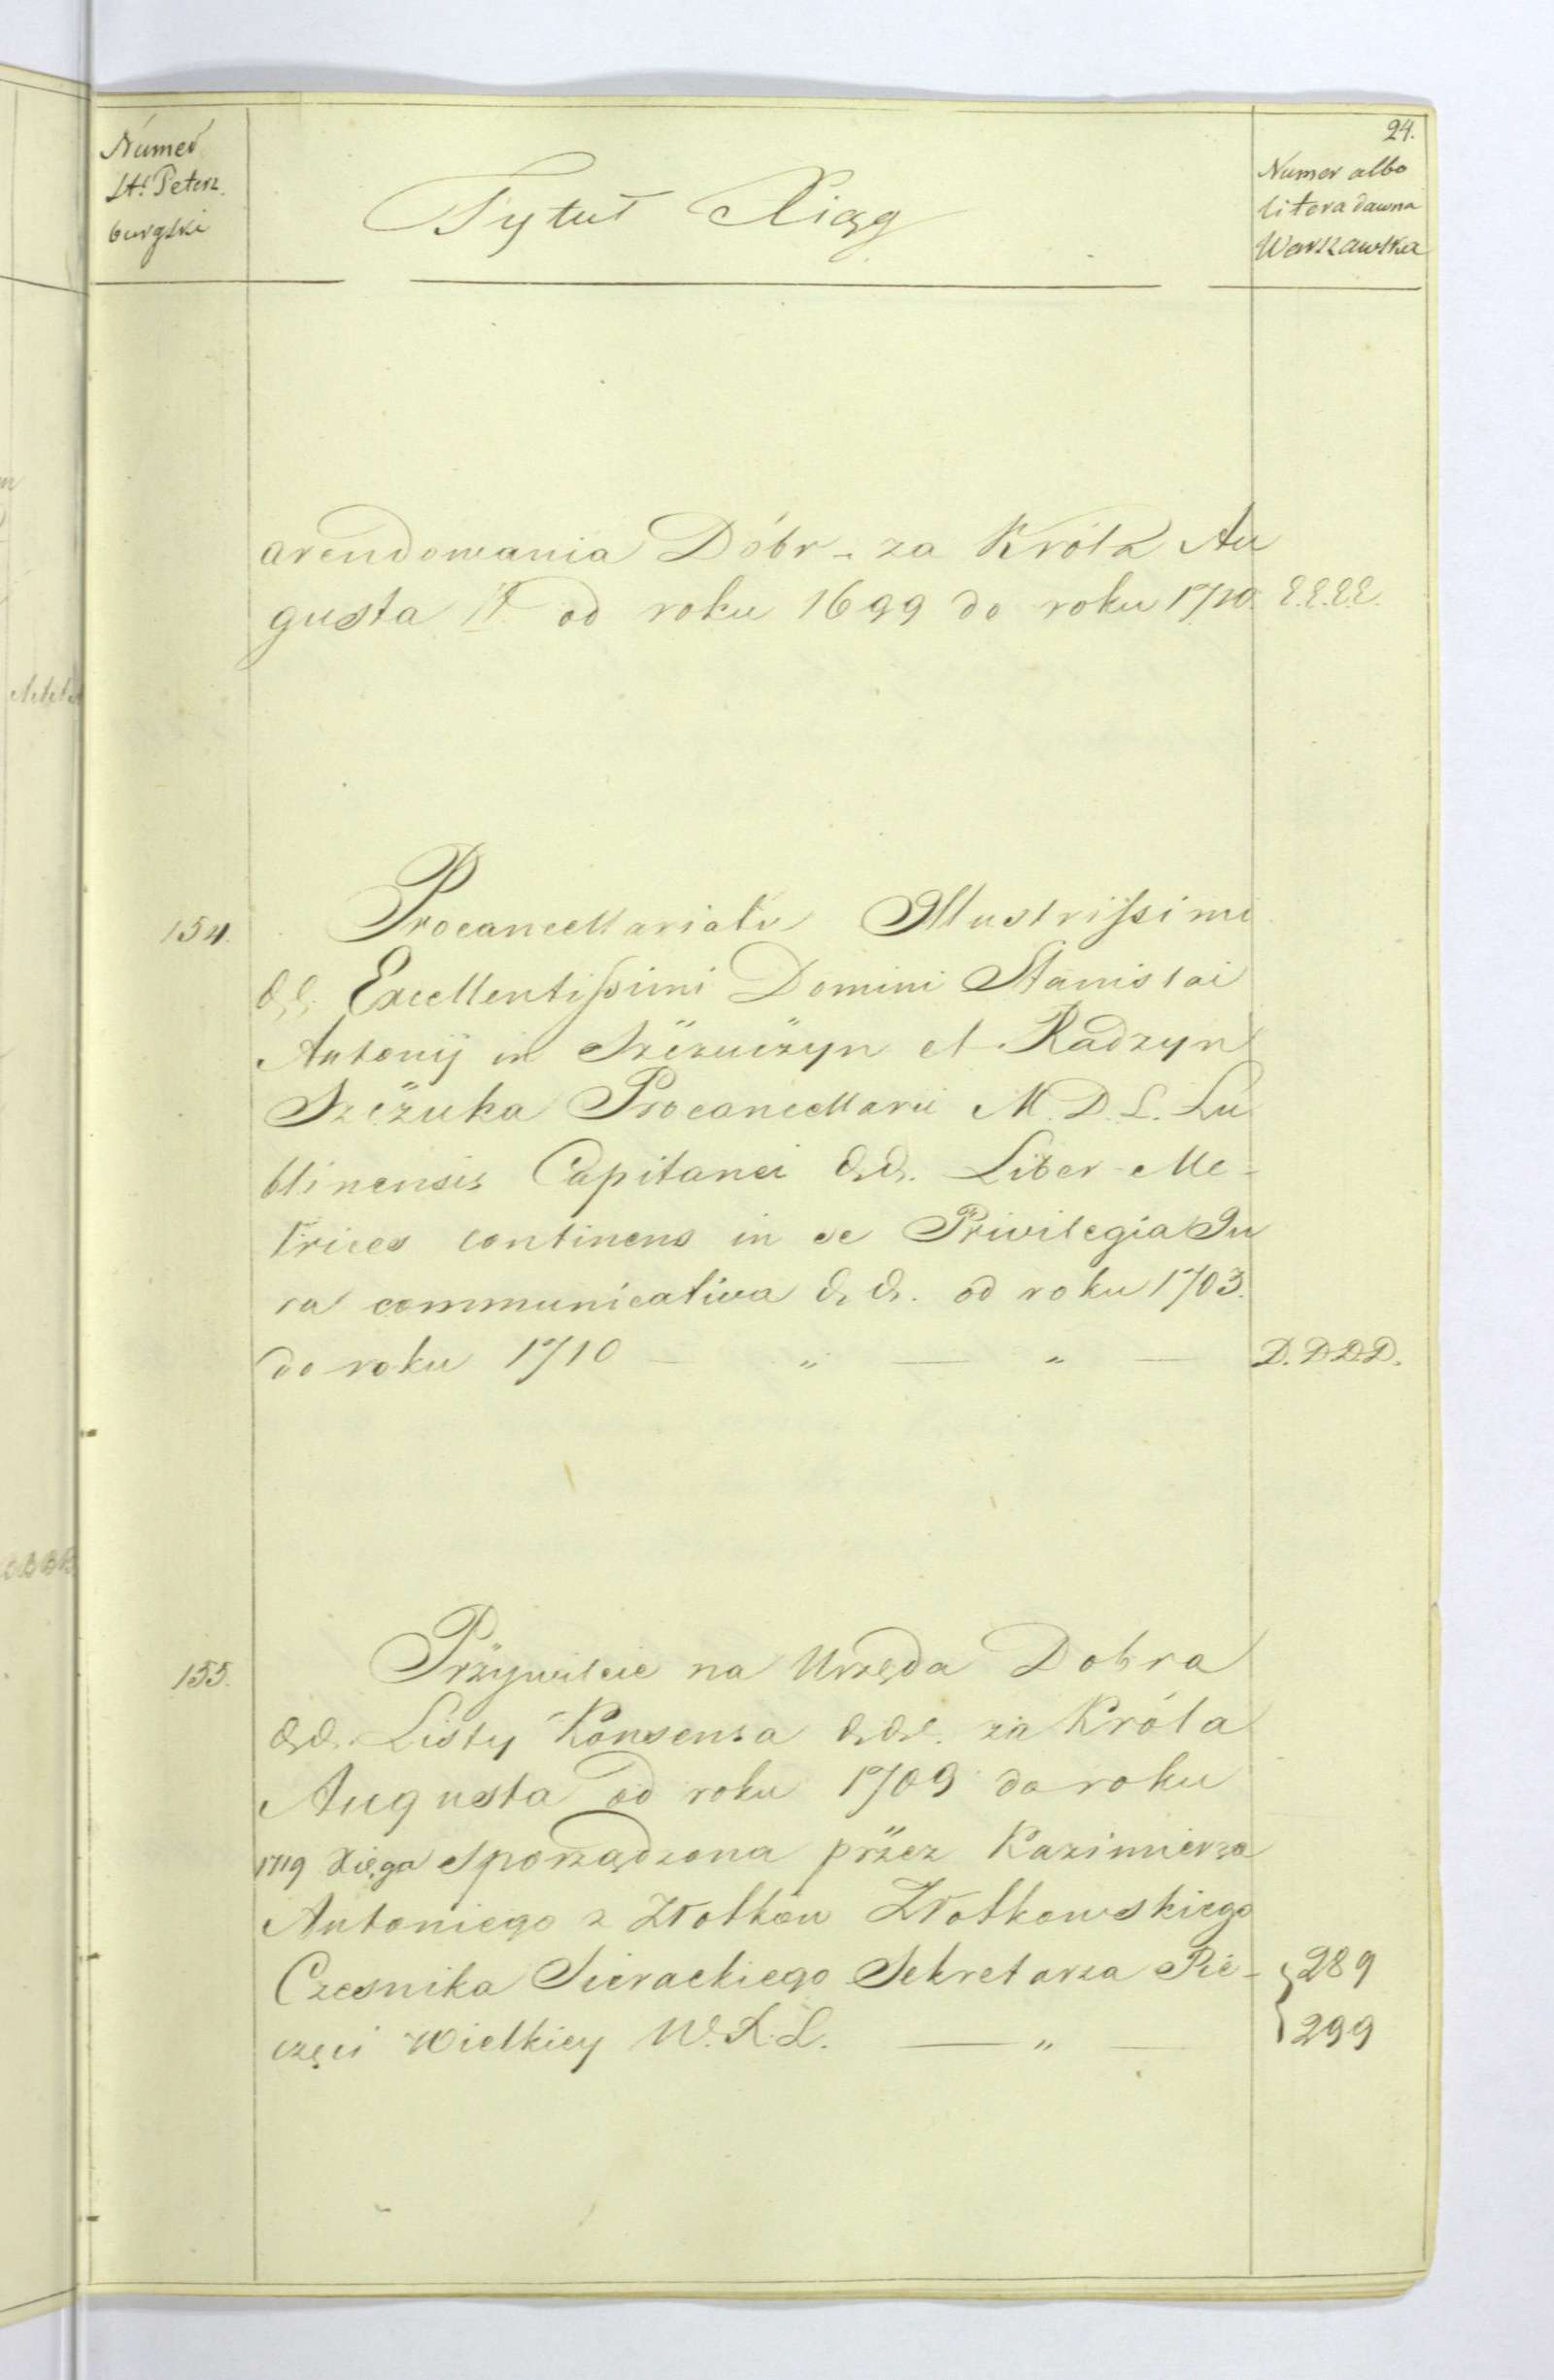 24.
Numer
St. Petersz.
burgski
Tytuł Xiąg
Numer albo
litera dawna
Warszawska
arendowania Dóbr - za Króla Au
gusta II od roku 1699 do roku 1710. E.E.E.E.
154. Procancellariatu Illustrissimi
&& Excellentissimi Domini Stanislai
Antonij in Szczuczyn et Radzyn
Szczuka Procancellarii M. D. L. Lu
blinensis Capitanei &&. Liber Me-
trices continens in se Privilegia Ju
ra communicativa &&. od roku 1703.
do roku 1710 — „ — „ — D. D.D.D.
155. Przywileie na Urzęda Dobra
&&. Listy Konsensa &&. za Króla
Augusta od roku 1709 do roku
1719 Xięga Sporządzona przez Kazimierza
Antoniego z Złotkow Złotkowskiego
Czesnika Sierackiego Sekretarza Pie- 289
częci Wielkiey W. X. L. — „ — 299